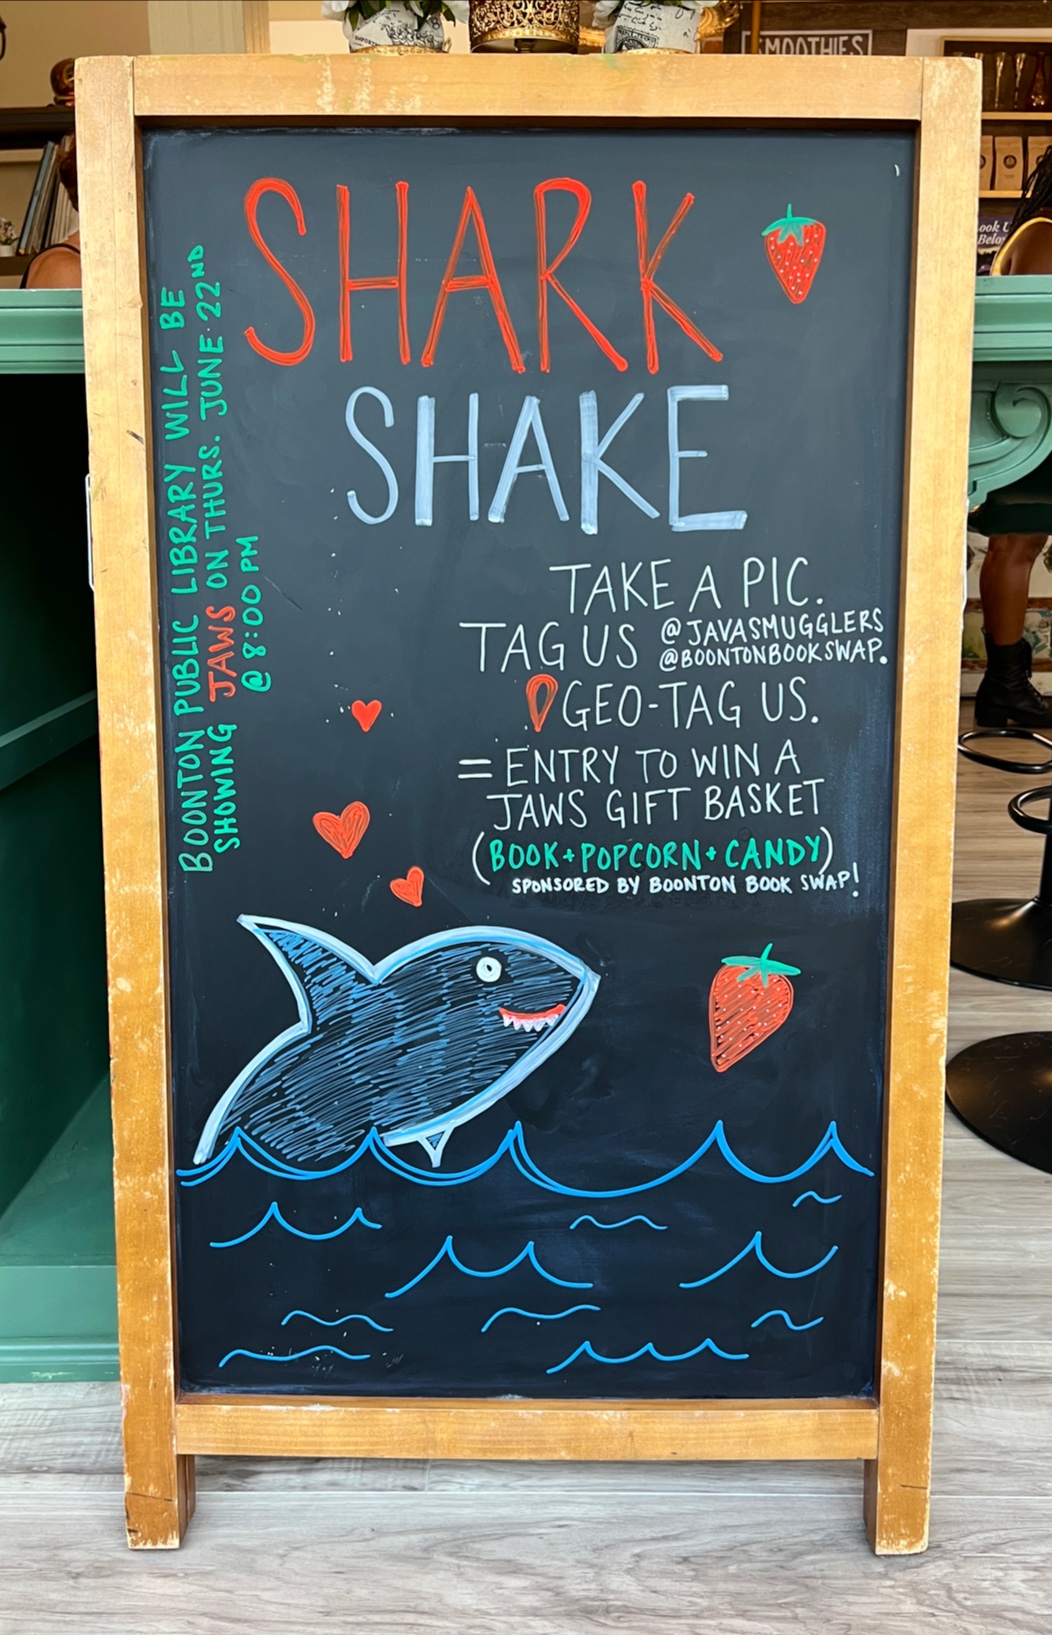 SMOOTHIES
SHARK
SHAKE
TAKE A PIC.
TAG US @JAVASMUGGLERS
@BOONTONBOOKSWAP.
GEO-TAG US.
= ENTRY TO WIN A
JAWS GIFT BASKET
(BOOK+POPCORN+CANDY)
SPONSORED BY BOONTON BOOK SWAP!
BOONTON PUBLIC LIBRARY WILL BE
SHOWING JAWS ON THURS. JUNE 22ND
@ 8:00 PM